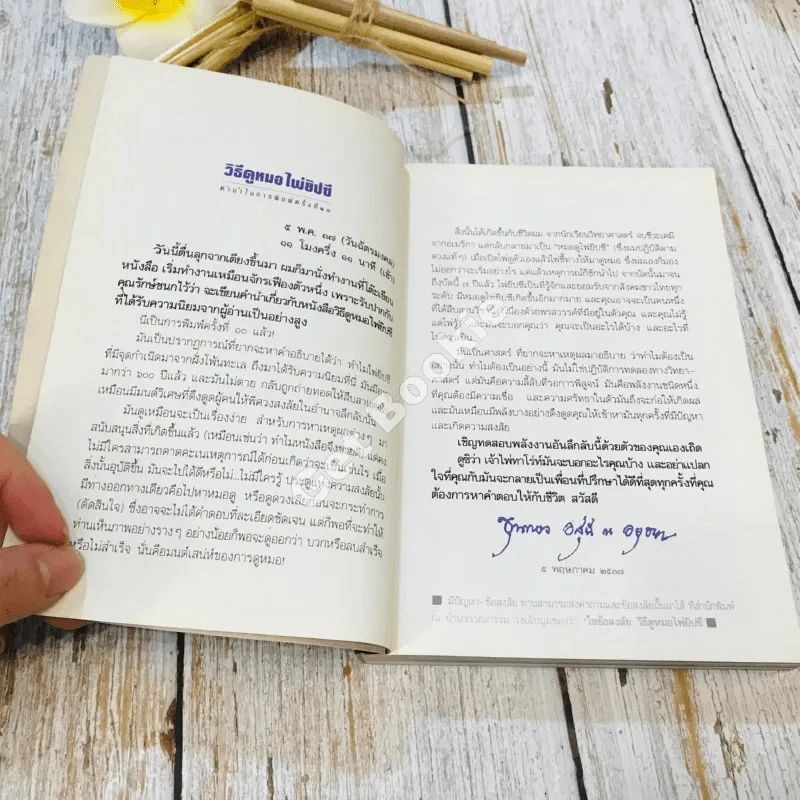 วิธีดูหมอไพ่ยิปซี
คำนำในการพิมพ์ครั้งที่ ๑๐
๕ พ.ค. ๓๗ (วันฉัตรมงคล)
๑๑ โมงครึ่ง ๑๑ นาที (เช้า)
วันนี้ตื่นลุกจากเตียงขึ้นมา ผมก็มานั่งทำงานที่โต๊ะเขียน
หนังสือ เริ่มทำงานเหมือนจักรเฟืองตัวหนึ่ง เพราะรับปากกับ
คุณรักษ์ชนกไว้ว่า จะเขียนคำนำเกี่ยวกับหนังสือวิธีดูหมอไพ่ยิปซี
ที่ได้รับความนิยมจากผู้อ่านเป็นอย่างสูง
นี่เป็นการพิมพ์ครั้งที่ ๑๐ แล้ว!
มันเป็นปรากฏการณ์ที่ยากจะหาคำอธิบายได้ว่า ทำไมไพ่ยิปซี
ที่มีจุดกำเนิดมาจากฝั่งโพ้นทะเล ถึงมาได้รับความนิยมที่นี่ มันมีอายุ
มากกว่า ๖๐๐ ปีแล้ว และมันไม่ตาย กลับถูกถ่ายทอดให้สืบลานมา
เหมือนมีมนต์วิเศษที่ดึงดูดผู้คนให้พิศวงสงสัยในอำนาจลึกลับนั้น
มันดูเหมือนจะเป็นเรื่องง่าย สำหรับการหาเหตุผลต่างๆ มา
สนับสนุนสิ่งที่เกิดขึ้นแล้ว (เหมือนเช่นว่า ทำไมหนังสือจึงขายดี) แต่คง
ไม่มีใครสามารถคาดคะเนเหตุการณ์ได้ก่อนเกิดว่าจะเป็นเช่นไร เมื่อ
สิ่งนั้นอุบัติขึ้น มันจะไปได้ดีหรือไม่...ไม่มีใครรู้ ประตูแห่งความสงสัยนั้น
มีทางออกทางเดียวคือไปหาหมอดู หรือดูดวงเสียก่อนจะกระทำการ
(ตัดสินใจ) ซึ่งอาจจะไม่ได้คำตอบที่ละเอียดชัดเจน แต่ก็พอที่จะทำให้
ท่านเห็นภาพอย่างรางๆ อย่างน้อยก็พอจะดูออกว่า บวกหรือลบสำเร็จ
หรือไม่สำเร็จ นั่นคือมนต์เสน่ห์ของการดูหมอ!
สิ่งนี้ได้เกิดขึ้นกับชีวิตผม จากนักเรียนวิทยาศาสตร์ จบชีวะเคมี
จากอเมริกา แต่กลับกลายมาเป็น "หมอดูไพ่ยิปซี" (ซึ่งผมปฏิบัติตาม
ดวงแท้ๆ) เมื่อเปิดไพ่ดูตัวเองแล้วไพ่ชี้ทางให้มาดูหมอ ซึ่งผมเองก็มอง
ไม่ออกว่าจะเริ่มอย่างไร แต่แล้วเหตุการณ์ก็ชักนำไป จากบัดนั้นมาจน
ถึงบัดนี้ ๗ ปีแล้ว ไพ่ยิปซีเป็นที่รู้จักและยอมรับจากสังคมชาวไทยทุกๆ
ระดับ มีหมอดูไพ่ยิปซีเกิดขึ้นอีกมากมาย และคุณอาจจะเป็นคนหนึ่ง
ที่ได้สืบสาน เนื่องด้วยพรสวรรค์ที่มีอยู่ในตัวคุณ และคุณไม่รู้
แต่ไพ่รู้ และมันจะบอกคุณว่า คุณจะเป็นอะไรได้บ้าง และอะไรที่
ไม่ควรทำ
มันเป็นศาสตร์ ที่ยากจะหาเหตุผลมาอธิบาย ว่าทำไมต้องเป็น
อย่างนั้น ทำไมต้องเป็นอย่างนี้ มันไม่ใช่ปฏิบัติการทดลองทางวิทยา-
ศาสตร์ แต่มันคือความลี้ลับที่รอการพิสูจน์ มันคือพลังงานชนิดหนึ่ง
ที่คุณต้องมีความเชื่อ และความศรัทธาในตัวมันถึงจะก่อให้เกิดผล
และมันเหมือนมีพลังบางอย่างดึงดูดคุณให้เข้าหามันทุกครั้งที่มีปัญหา
และเกิดความสงสัย
เชิญทดสอบพลังงานอันลึกลับนี้ด้วยตัวของคุณเองเถิด
ดูซิว่า เจ้าไพ่ทาโร่ท์มันจะบอกอะไรคุณบ้าง และอย่าแปลก
ใจที่คุณกับมันจะกลายเป็นเพื่อนที่ปรึกษาได้ดีที่สุดทุกครั้งที่คุณ
ต้องการหาคำตอบให้กับชีวิต สวัสดี
๕ พฤษภาคม ๒๕๓๗
มีปัญหา-ข้อสงสัย ท่านสามารถส่งคำถามและข้อสงสัยนั้นมาได้ ที่สำนักพิมพ์
ณ บ้านวรรณกรรม วงเล็บมุมซองว่า 'ไขข้อสงสัย วิธีดูหมอไพ่ยิปซี'
Get Bookie